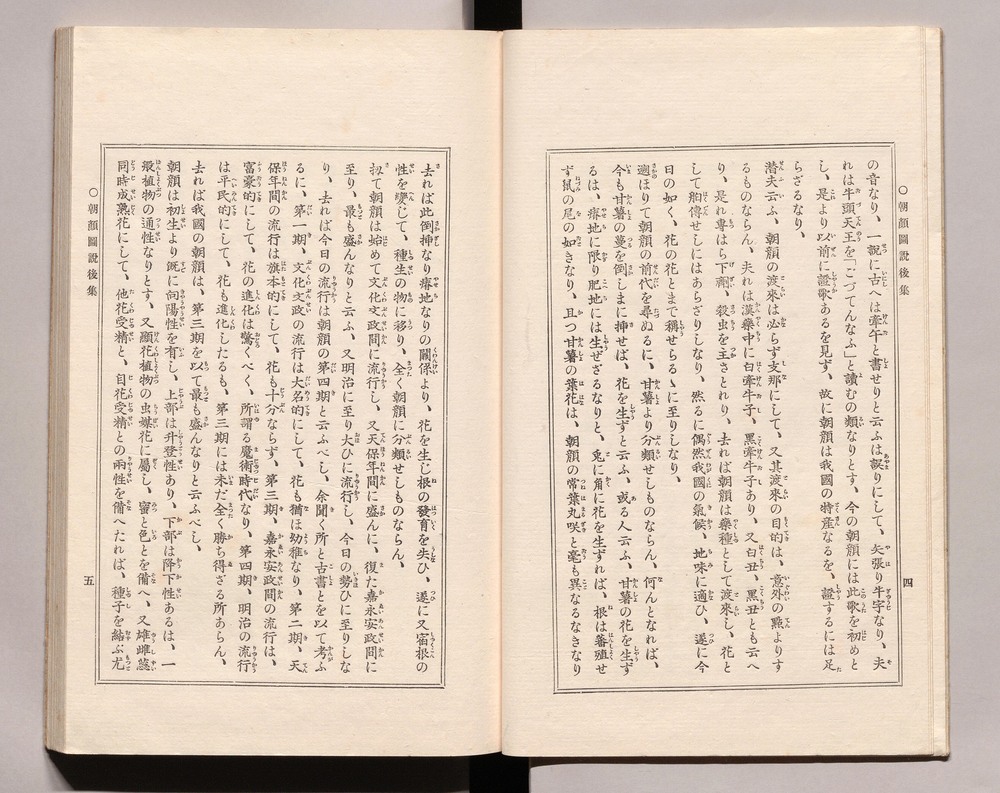 ○朝顔圖説後集
四
の音なり、一説に古へは牽午と書せりと云ふは誤りにして、矢張り牛字なり、夫
れは牛頭天王を「ごづてんなふ」と讀むの類なりとす、今の朝顔には此歌を初めと
し、是より以前に證歌あるを見ず、故に朝顔は我國の特産なるを、證するには足
らざるなり、
潜夫云ふ、朝顔の渡來は必らず支那にして、又其渡來の目的は、意外の點よりす
るものならん、夫れは漢藥中に白牽牛子、黒牽牛子あり、又白丑、黒丑とも云へ
り、是れ專はら下劑、殺虫を主さとれり、去れば朝顔は藥種として渡來し、花と
して舶傳せしにはあらざりしなり、然るに偶然我國の氣候、地味に適ひ、遂に今
日の如く、花の花とまで稱せらるゝに至りしなり、
遡ほりて朝顔の前代を尋ぬるに、甘薯より分類せしものならん、何んとなれば、
今も甘薯の蔓を倒しまに挿せば、花を生ずと云ふ、或る人云ふ、甘薯の花を生ず
るは、瘠地に限り肥地には生ぜざるなりと、兎に角に花を生ずれば、根は蕃殖せ
ず鼠の尾の如きなり、且つ甘薯の葉花は、朝顔の常葉丸咲と毫も異なるなきなり
去れば此倒挿なり瘠地なりの關係より、花を生じ根の發育を失ひ、遂に又宿根の
性を變じて、種生の物に移り、全く朝顔に分類せしものならん、
扨て朝顔は始めて文化文政間に流行し、又天保年間に盛んに、復た嘉永安政間に
至り、最も盛んなりと云ふ、又明治に至り大ひに流行し、今日の勢ひに至りしな
り、去れば今日の流行は朝顔の第四期と云ふべし、余聞く所と古書とを以て考ふ
るに、第一期、文化文政の流行は大名的にして、花も猶ほ幼稚なり、第二期、天
保年間の流行は旗本的にして、花も十分ならず、第三期、嘉永安政間の流行は、
富豪的にして、花の進化は驚くべく、所謂る魔術時代なり、第四期、明治の流行
は平民的にして、花も進化したるも、第三期には未だ全く勝ち得ざる所あらん、
去れば我國の朝顔は、第三期を以て最も盛んなりと云ふべし、
朝顔は初生より既に向陽性を有し、上部は升登性あり、下部は降下性あるは、一
般植物の通性なりとす、又顯花植物の虫媒花に屬し、蜜と色とを備へ、又雌雄蕋
同時成熟花にして、他花受精と、自花受精との兩性を備へたれば、種子を結ぶ尤
○朝顔圖説後集
五